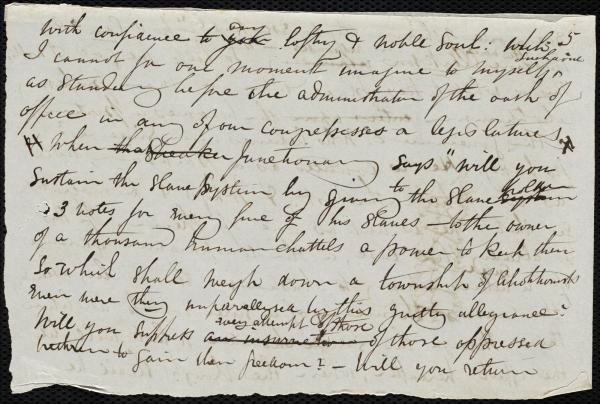 With confidence to any lofty & noble Soul: while 5
I cannot for one moment imagine to myself, such a one
as standing before the administrator of the oath of
office in any of our Congresses or legislatures,
When the Speaker functionary says "Will you
sustain the Slave System by giving to the Slave holder
3 votes for every five of his slaves — to the owner
of a thousand human chattels a power to keep them
So which shall weigh down a township of Abolitionists
even were they unparalleled by this guilty allegiance?
Will you suppress every attempt of those an insurrection of those oppressed
to gain their freedom? — Will you return